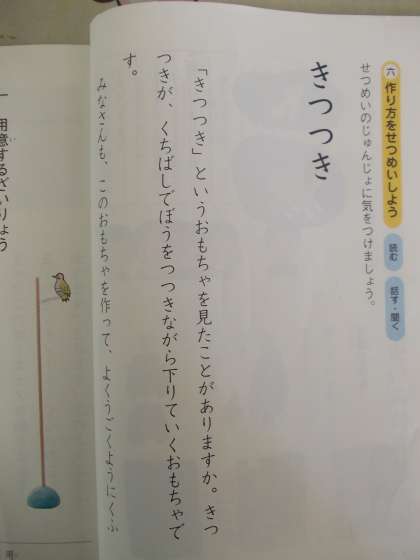 六 作り方をせつめいしよう
読む
話す・聞く
せつめいのじゅんじょに気をつけましょう。
きつつき
「きつつき」というおもちゃを見たことがありますか。きつ
つきが、くちばしでぼうをつつきながら下りていくおもちゃで
す。
みなさんも、このおもちゃを作って、よくうごくようにくふ
一 用意するざいりょう